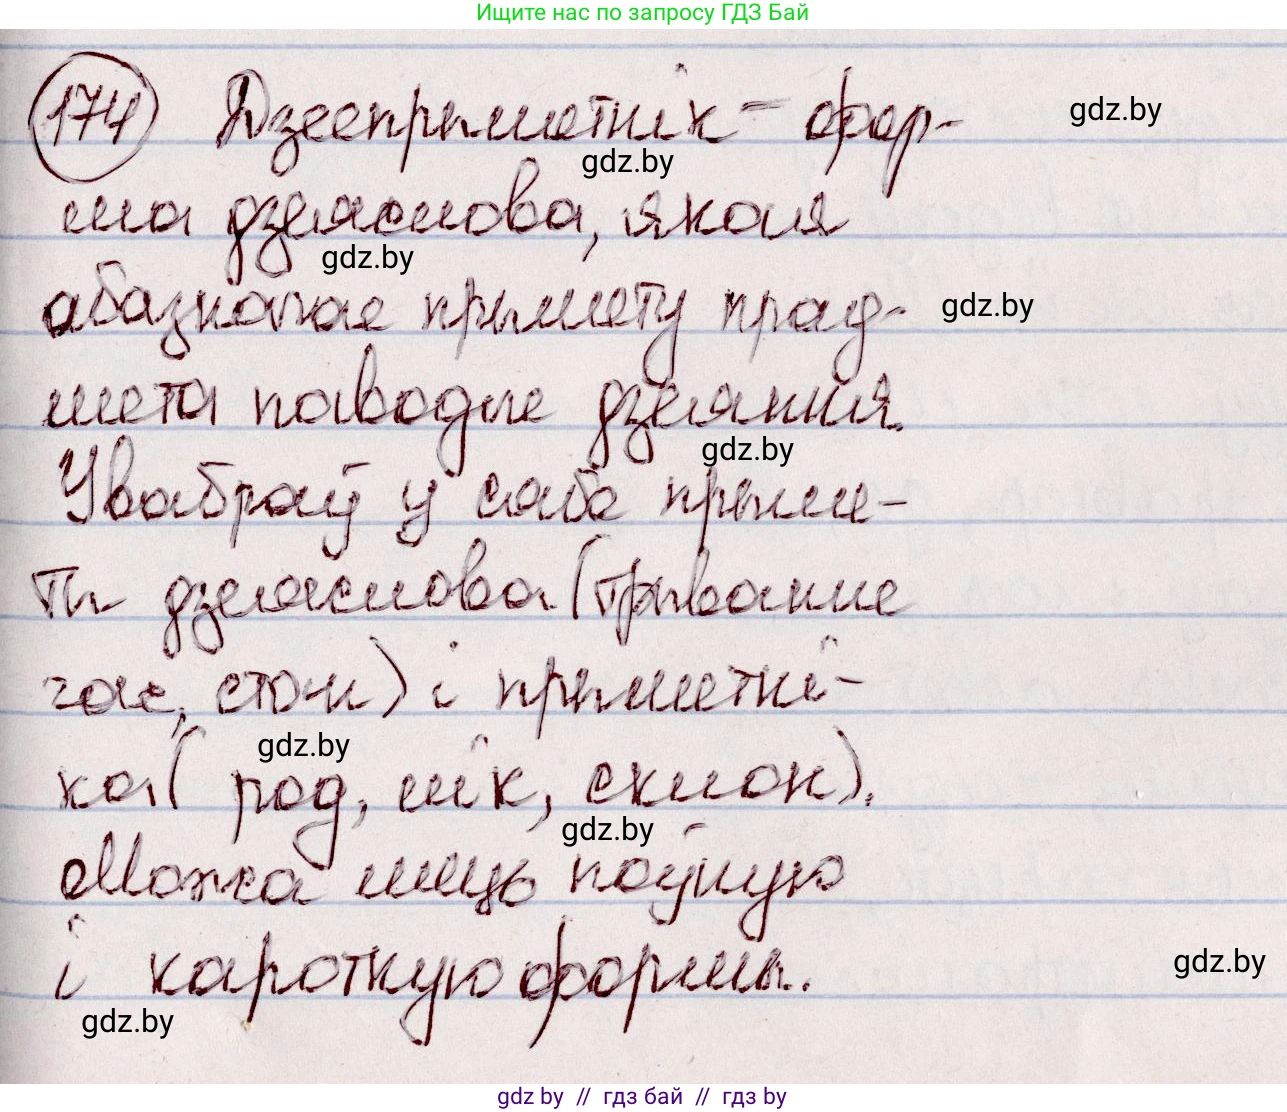 Ищите нас по запросу ГДЗ Бай
174 Дзеепрыметнік - фор-
gdz.by
gdz.by
ма дзеяслова, якая
gdz.by
абазначае прымету прад-
gdz.by
мета паводле дзеяння.
gdz.by
Увабраў у сабе прыме-
ты дзеяслова (трыванне
час, стан) і прыметні-
gdz.by
ка (род, лік, склон).
gdz.by
Можа мець поўную
і кароткую формы.
gdz.by
gdz.by
gdz.by // гдз бай // гдз by